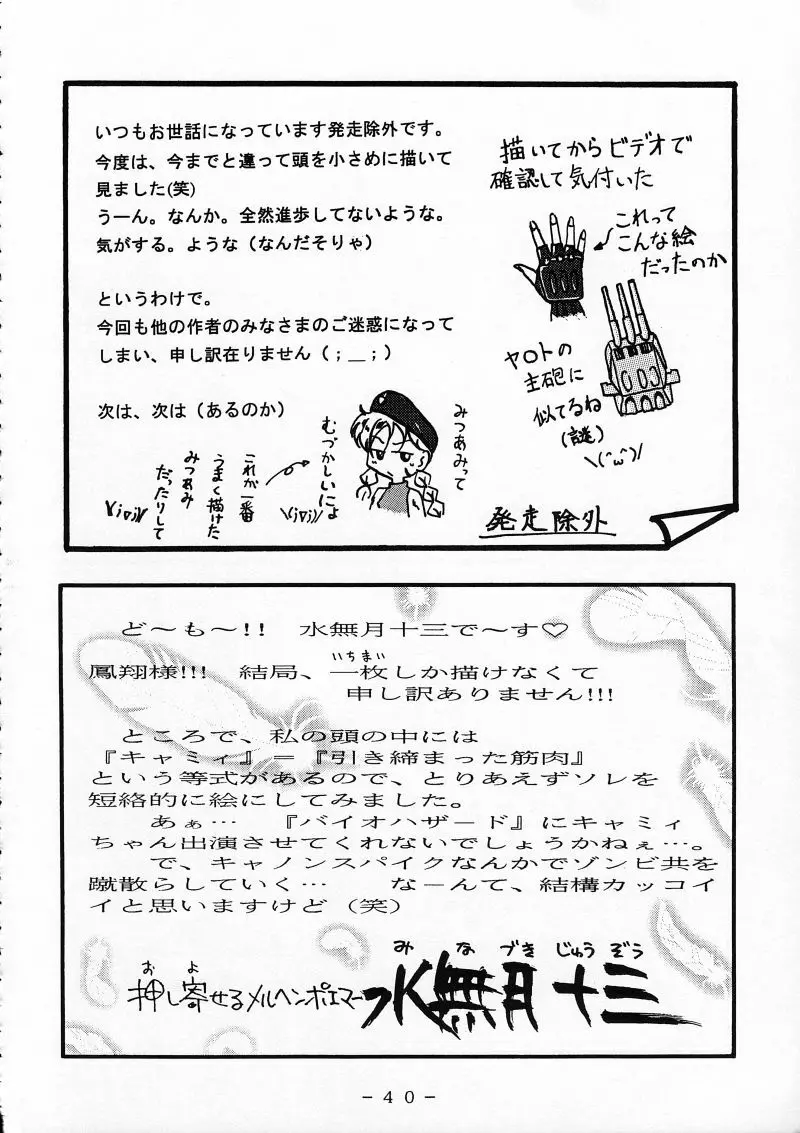 いつもお世話になっています発走除外です。
今度は、今までと違って頭を小さめに描いて
見ました(笑)
うーん。なんか。全然進歩してないような。
気がする。ような（なんだそりゃ）
というわけで。
今回も他の作者のみなさまのご迷惑になって
しまい、申し訳在りません（；＿；）
次は、次は（あるのか）
描いてからビデオで
確認して気付いた
これって
こんな絵
だったのか
ヤロトの
主砲に
似てるね
(謎)
\(^ω^)/
みつあみって
むづかしいによ
\(i▽i)/
これが一番
うまく描けた
みつあみ
だったりして
\(i▽i)/
発走除外
ど〜も〜!!　水無月十三で〜す♡
いちまい
鳳翔様!!!　結局、一枚しか描けなくて
申し訳ありません!!!
ところで、私の頭の中には
『キャミィ』＝『引き締まった筋肉』
という等式があるので、とりあえずソレを
短絡的に絵にしてみました。
あぁ…　『バイオハザード』にキャミィ
ちゃん出演させてくれないでしょうかねぇ…。
で、キャノンスパイクなんかでゾンビ共を
蹴散らしていく…　なーんて、結構カッコイ
イと思いますけど（笑）
お　よ
押し寄せるメルヘンポエマー
み　な　づき　じゅう　ぞう
水無月十三
- 40 -